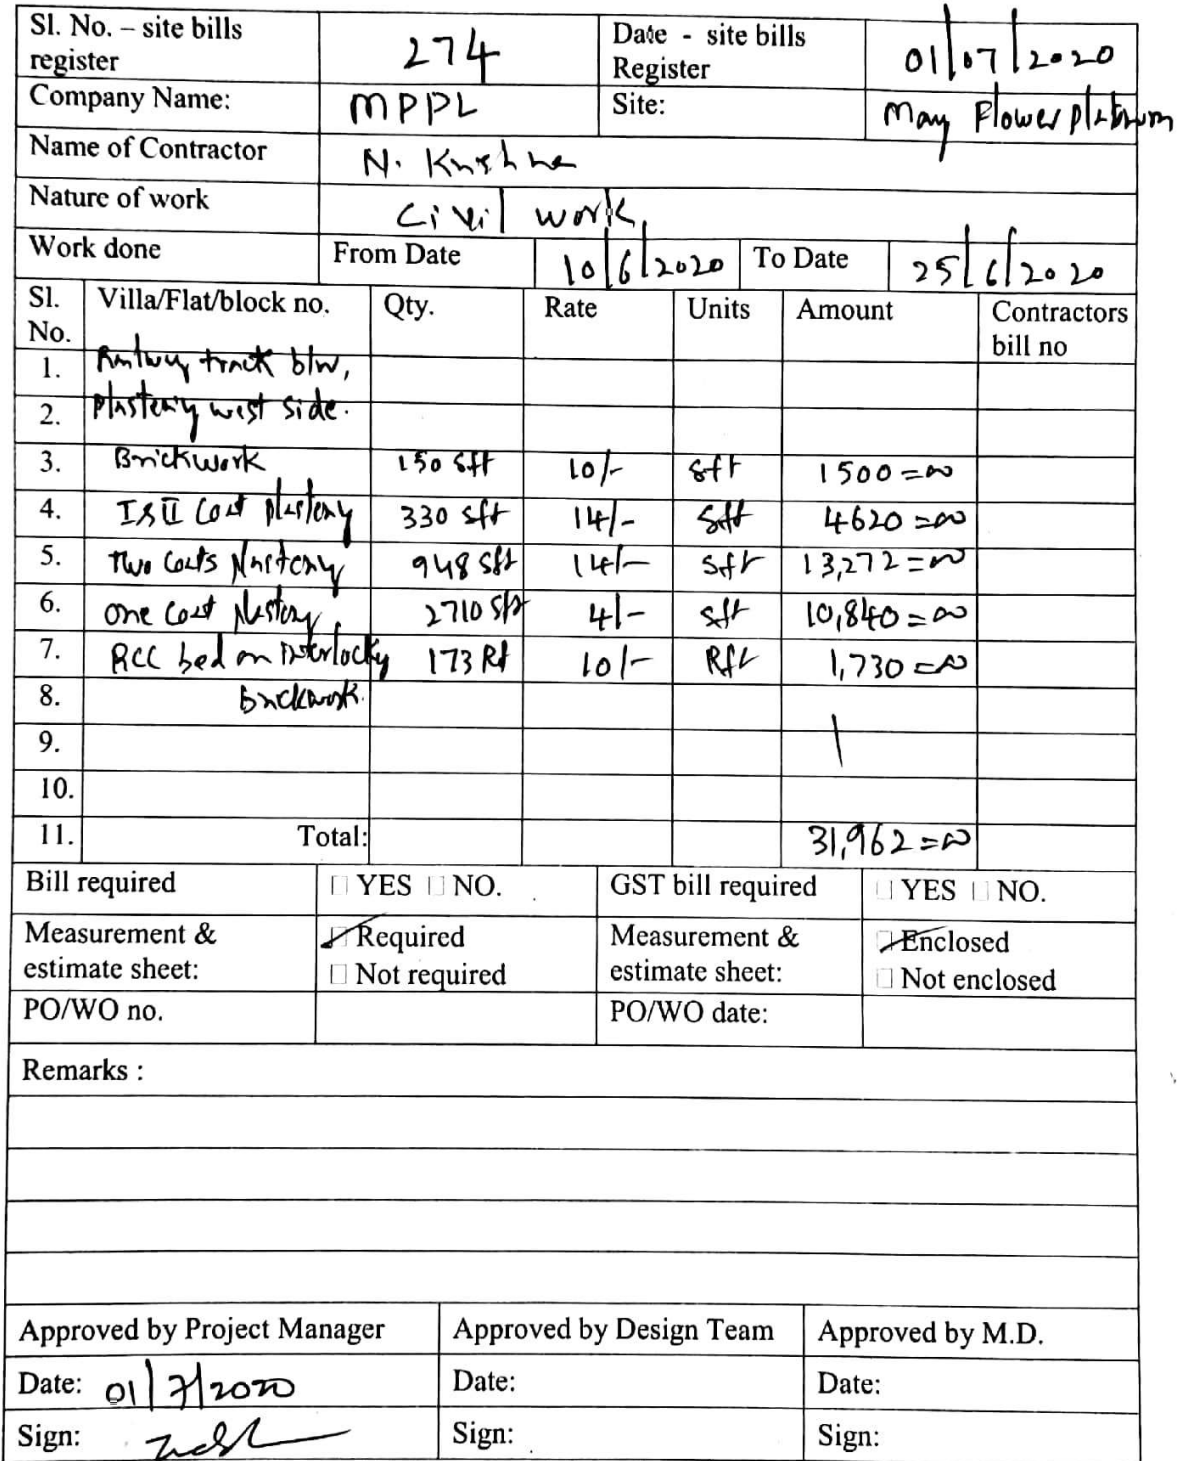 Sl. No. – site bills register 274 Date - site bills Register 01/07/2020
Company Name: MPPL Site: May Flower Platinum
Name of Contractor N. Krishna
Nature of work Civil work
Work done From Date 10/6/2020 To Date 25/6/2020
Sl. No. Villa/Flat/block no. Qty. Rate Units Amount Contractors bill no
1. Railway track btw,
2. Plastering west side.
3. Brickwork 150 sft 10/- sft 1500=00
4. I & II Coat plastery 330 sft 14/- Sft 4620=00
5. Two Coats Plastery 948 sft 14/- sft 13,272=00
6. one Coat Plastery 2710 sft 4/- sft 10,840=00
7. RCC bed on Interlocky 173 Rf 10/- Rft 1,730=00
8. Brickwork.
9.
10.
11. Total: 31,962=00
Bill required □ YES □ NO. GST bill required □ YES □ NO.
Measurement & estimate sheet: ☑ Required □ Not required Measurement & estimate sheet: ☑ Enclosed □ Not enclosed
PO/WO no. PO/WO date:
Remarks :
Approved by Project Manager Approved by Design Team Approved by M.D.
Date: 01/7/2020 Date: Date:
Sign: Sign: Sign: